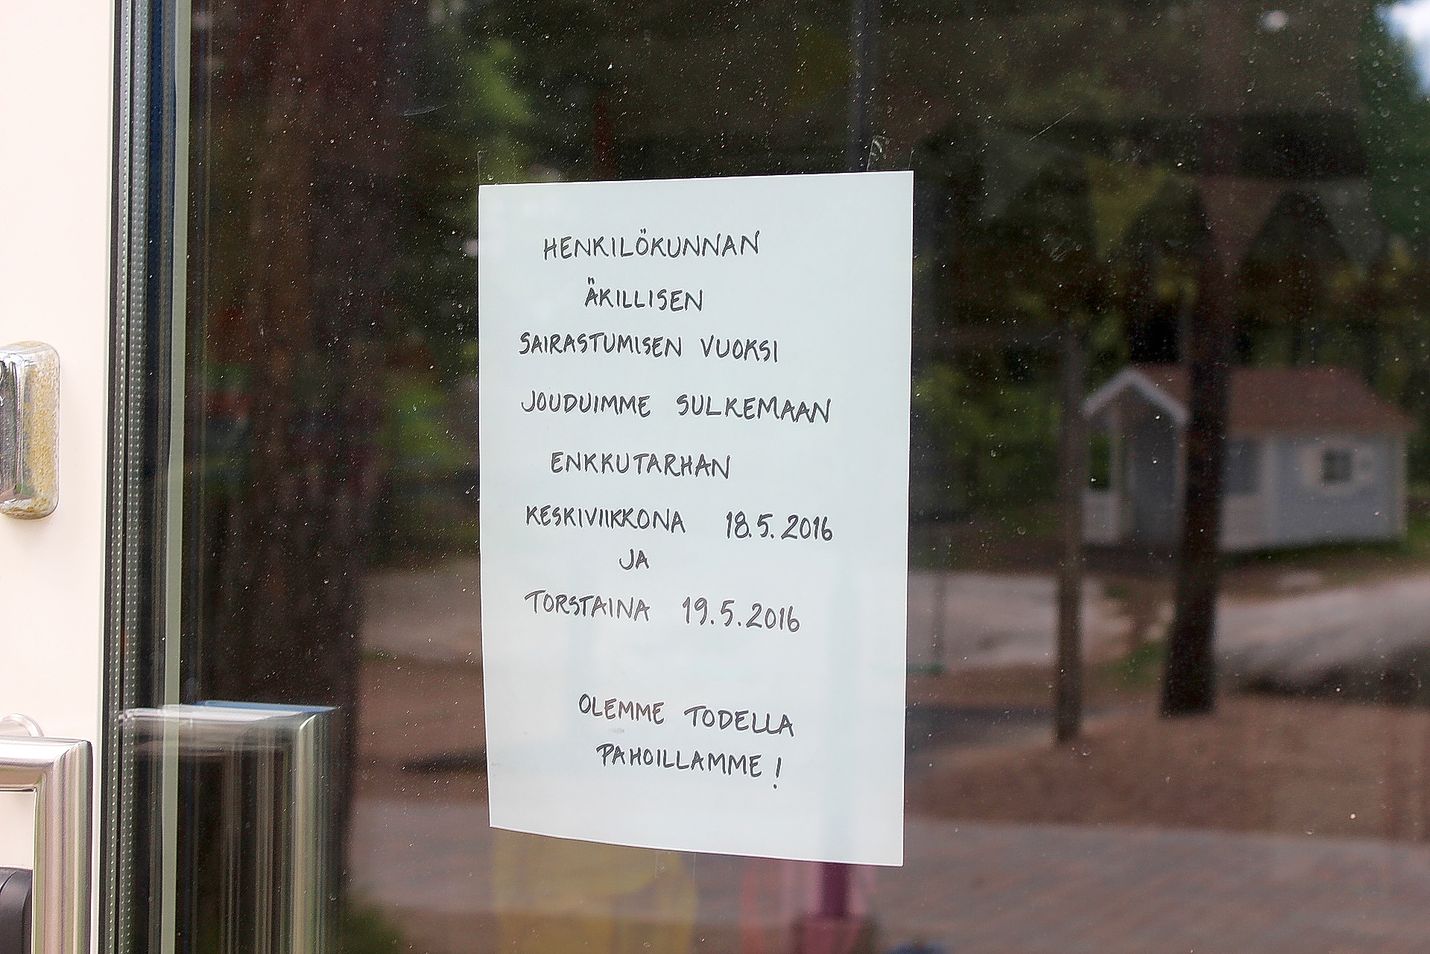 HENKILÖKUNNAN
ÄKILLISEN
SAIRASTUMISEN VUOKSI
JOUDUIMME SULKEMAAN
ENKKUTARHAN
KESKIVIIKKONA 18.5.2016
JA
TORSTAINA 19.5.2016
OLEMME TODELLA
PAHOILLAMME!